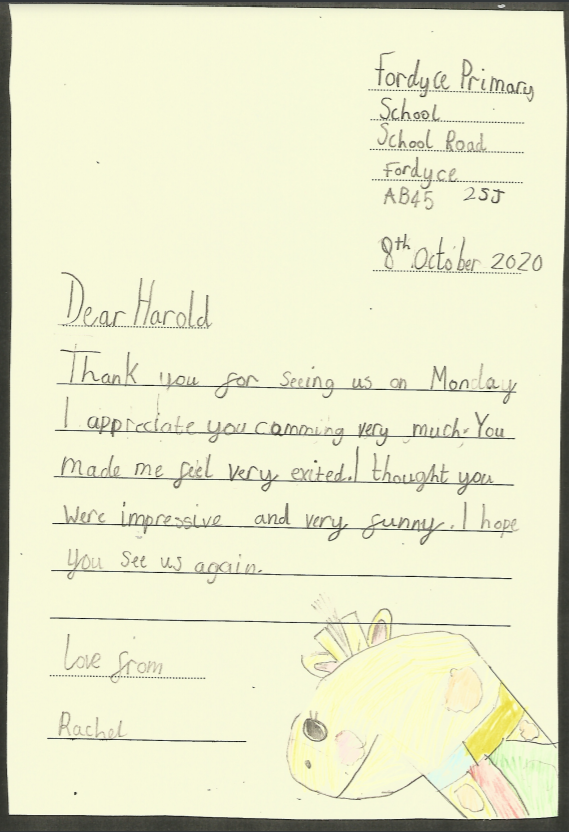 Fordyce Primary
School
School Road
Fordyce
AB45 2SJ
8th October 2020
Dear Harold
Thank you for seeing us on Monday
I appreciate you comming very much. You
made me feel very exited. I thought you
were impressive and very funny. I hope
you see us again.
Love from
Rachel